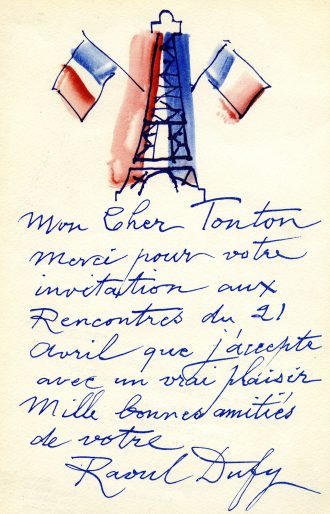 Mon Cher Tonton
Merci pour votre
invitation aux
Rencontres du 21
avril que j'accepte
avec un vrai plaisir
Mille bonnes amitiés
de votre
Raoul Dufy